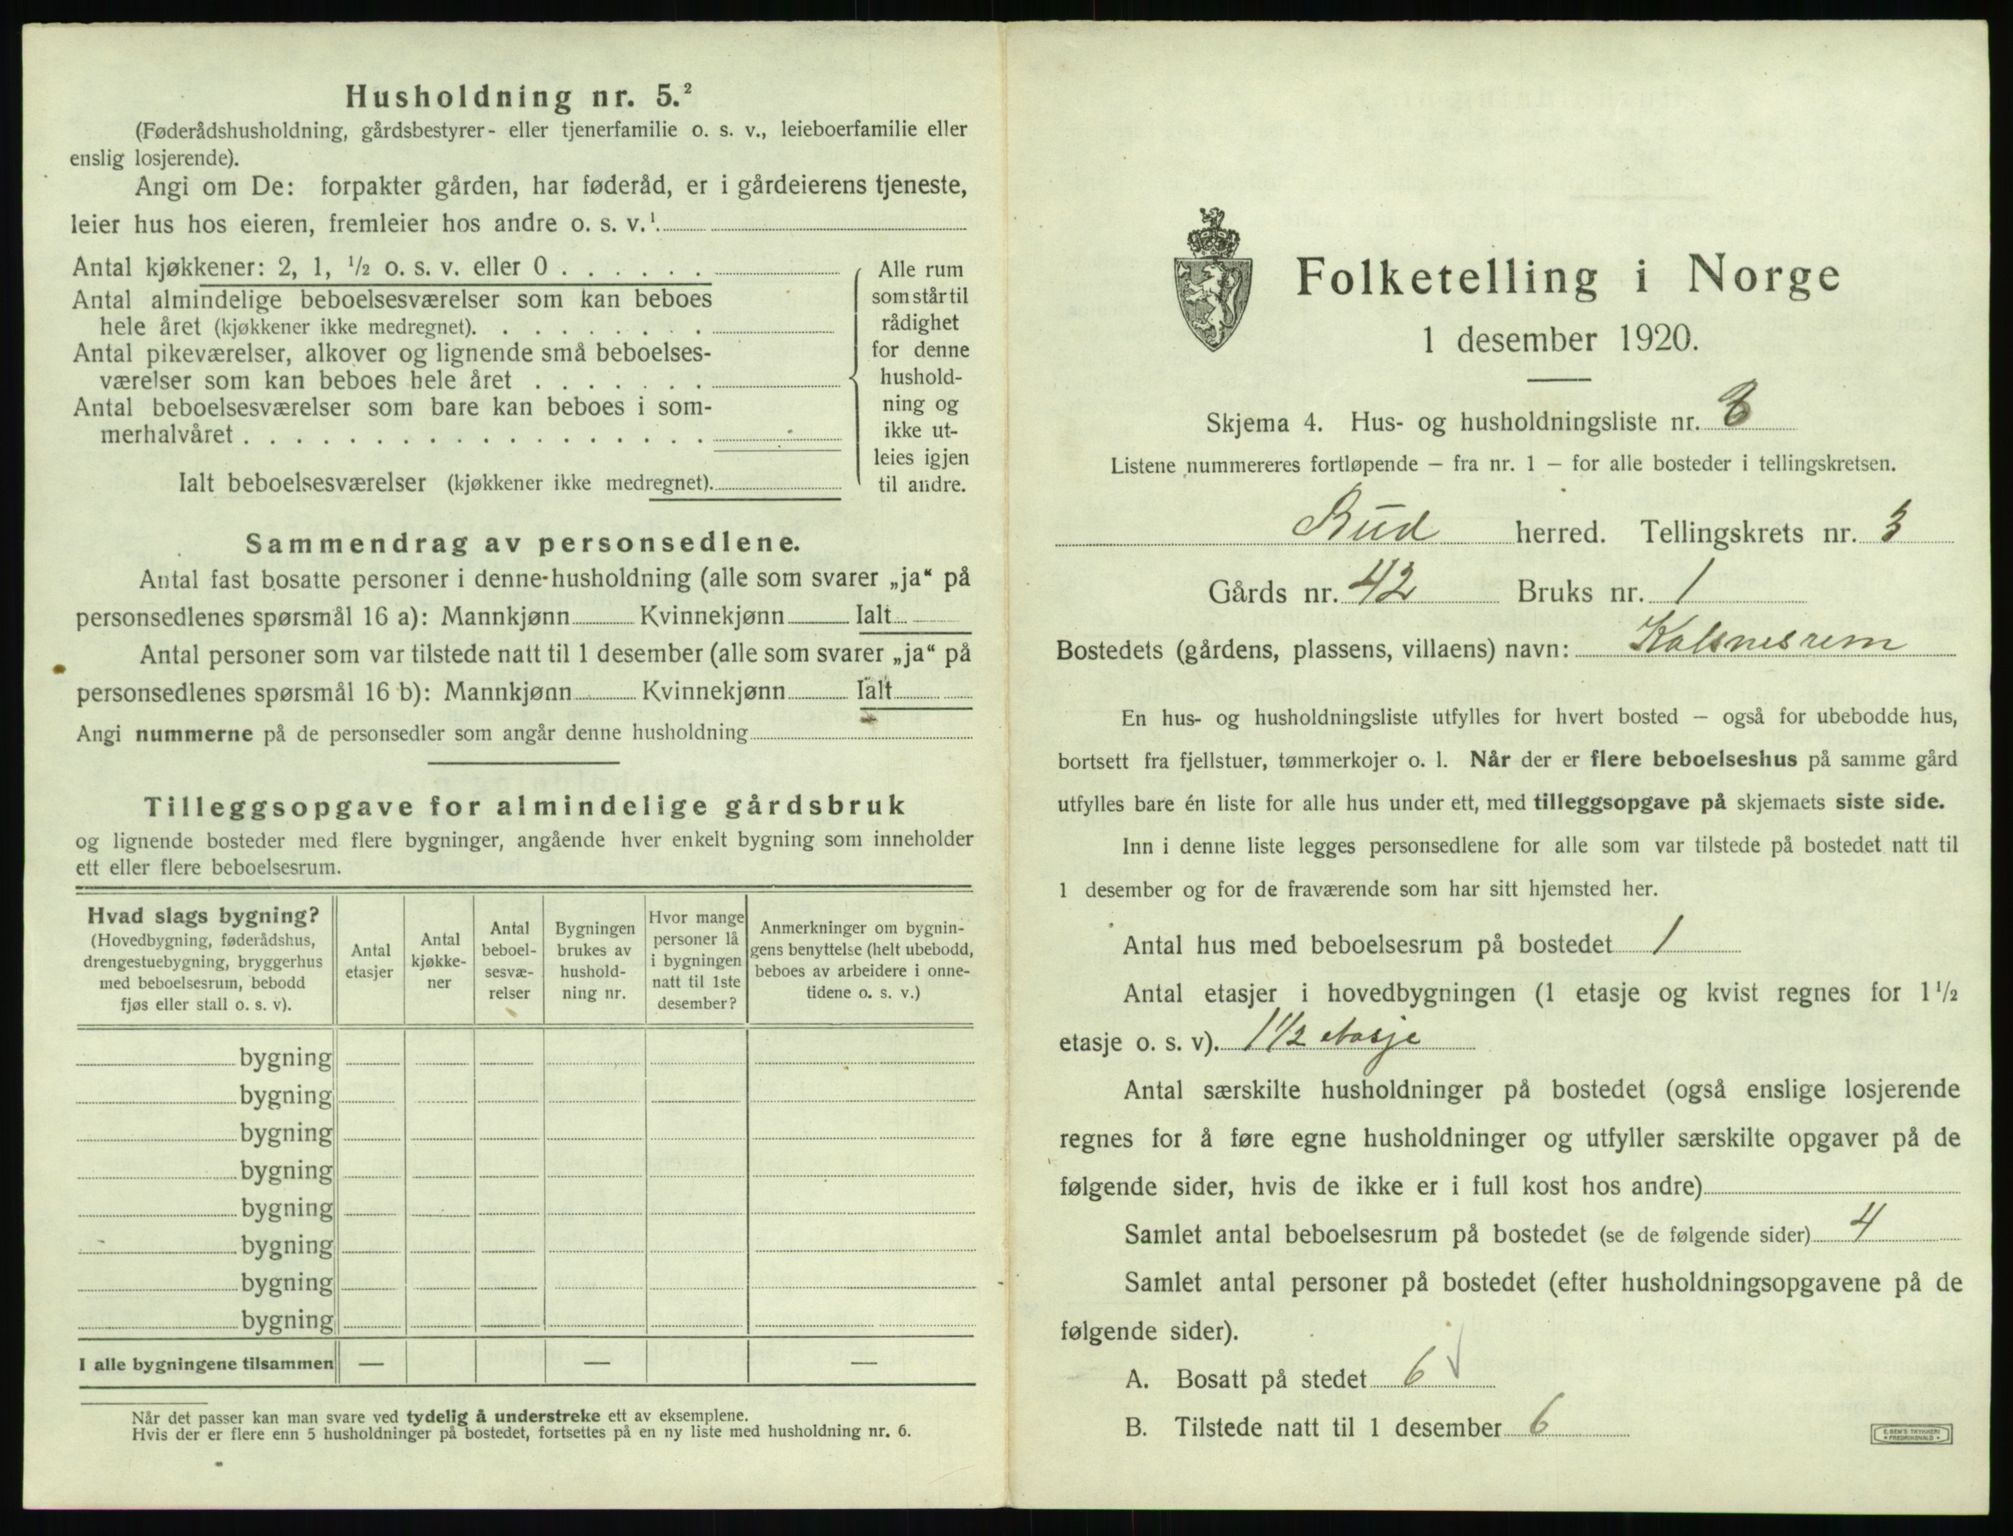 Husholdning nr. 5.²
(Føderådshusholdning, gårdsbestyrer- eller tjenerfamilie o. s. v., leieboerfamilie eller
enslig losjerende).
Angi om De: forpakter gården, har føderåd, er i gårdeierens tjeneste,
leier hus hos eieren, fremleier hos andre o. s. v.¹
Antal kjøkkener: 2, 1, ½ o. s. v. eller 0 . . . . . .
Antal almindelige beboelsesværelser som kan beboes
hele året (kjøkkener ikke medregnet). . . . . . . . .
Antal pikeværelser, alkover og lignende små beboelses-
værelser som kan beboes hele året . . . . . . .
Antal beboelsesværelser som bare kan beboes i som-
merhalvåret . . . . . . . . . . . . . . . . . .
Ialt beboelsesværelser (kjøkkener ikke medregnet).
Alle rum
som står til
rådighet
for denne
hushold-
ning og
ikke ut-
leies igjen
til andre.
Sammendrag av personsedlene.
Antal fast bosatte personer i denne husholdning (alle som svarer „ja“ på
personsedlenes spørsmål 16 a): Mannkjønn Kvinnekjønn Ialt
Antal personer som var tilstede natt til 1 desember (alle som svarer „ja“ på
personsedlenes spørsmål 16 b): Mannkjønn Kvinnekjønn Ialt
Angi nummerne på de personsedler som angår denne husholdning
Tilleggsopgave for almindelige gårdsbruk
og lignende bosteder med flere bygninger, angående hver enkelt bygning som inneholder
ett eller flere beboelsesrum.
Hvad slags bygning?
(Hovedbygning, føderådshus,
drengestuebygning, bryggerhus
med beboelsesrum, bebodd
fjøs eller stall o. s. v).
Antal
etasjer
Antal
kjøkke-
ner
Antal
beboel-
sesvæ-
relser
Bygningen
brukes av
hushold-
ning nr.
Hvor mange
personer lå
i bygningen
natt til 1ste
desember?
Anmerkninger om bygnin-
gens benyttelse (helt ubebodd,
beboes av arbeidere i onne-
tidene o. s. v.)
bygning
bygning
bygning
bygning
bygning
bygning
bygning
bygning
I alle bygningene tilsammen — — —
Når det passer kan man svare ved tydelig å understreke ett av eksemplene.
Hvis der er flere enn 5 husholdninger på bostedet, fortsettes på en ny liste med husholdning nr. 6.
Folketelling i Norge
1 desember 1920.
Skjema 4. Hus- og husholdningsliste nr.
Listene nummereres fortløpende – fra nr. 1 – for alle bosteder i tellingskretsen.
Bud herred. Tellingskrets nr. 3
Gårds nr. 42 Bruks nr. 1
Bostedets (gårdens, plassens, villaens) navn: Kalsnesrem
En hus- og husholdningsliste utfylles for hvert bosted – også for ubebodde hus,
bortsett fra fjellstuer, tømmerkojer o. l. Når der er flere beboelseshus på samme gård
utfylles bare én liste for alle hus under ett, med tilleggsopgave på skjemaets siste side.
Inn i denne liste legges personsedlene for alle som var tilstede på bostedet natt til
1 desember og for de fraværende som har sitt hjemsted her.
Antal hus med beboelsesrum på bostedet 1
Antal etasjer i hovedbygningen (1 etasje og kvist regnes for 1½
etasje o. s. v). 1½ etasje
Antal særskilte husholdninger på bostedet (også enslige losjerende
regnes for å føre egne husholdninger og utfyller særskilte opgaver på de
følgende sider, hvis de ikke er i full kost hos andre)
Samlet antal beboelsesrum på bostedet (se de følgende sider) 4
Samlet antal personer på bostedet (efter husholdningsopgavene på de
følgende sider).
A. Bosatt på stedet 6 √
B. Tilstede natt til 1 desember 6
E. SEM'S TRYKKERI
FREDRIKSHALD